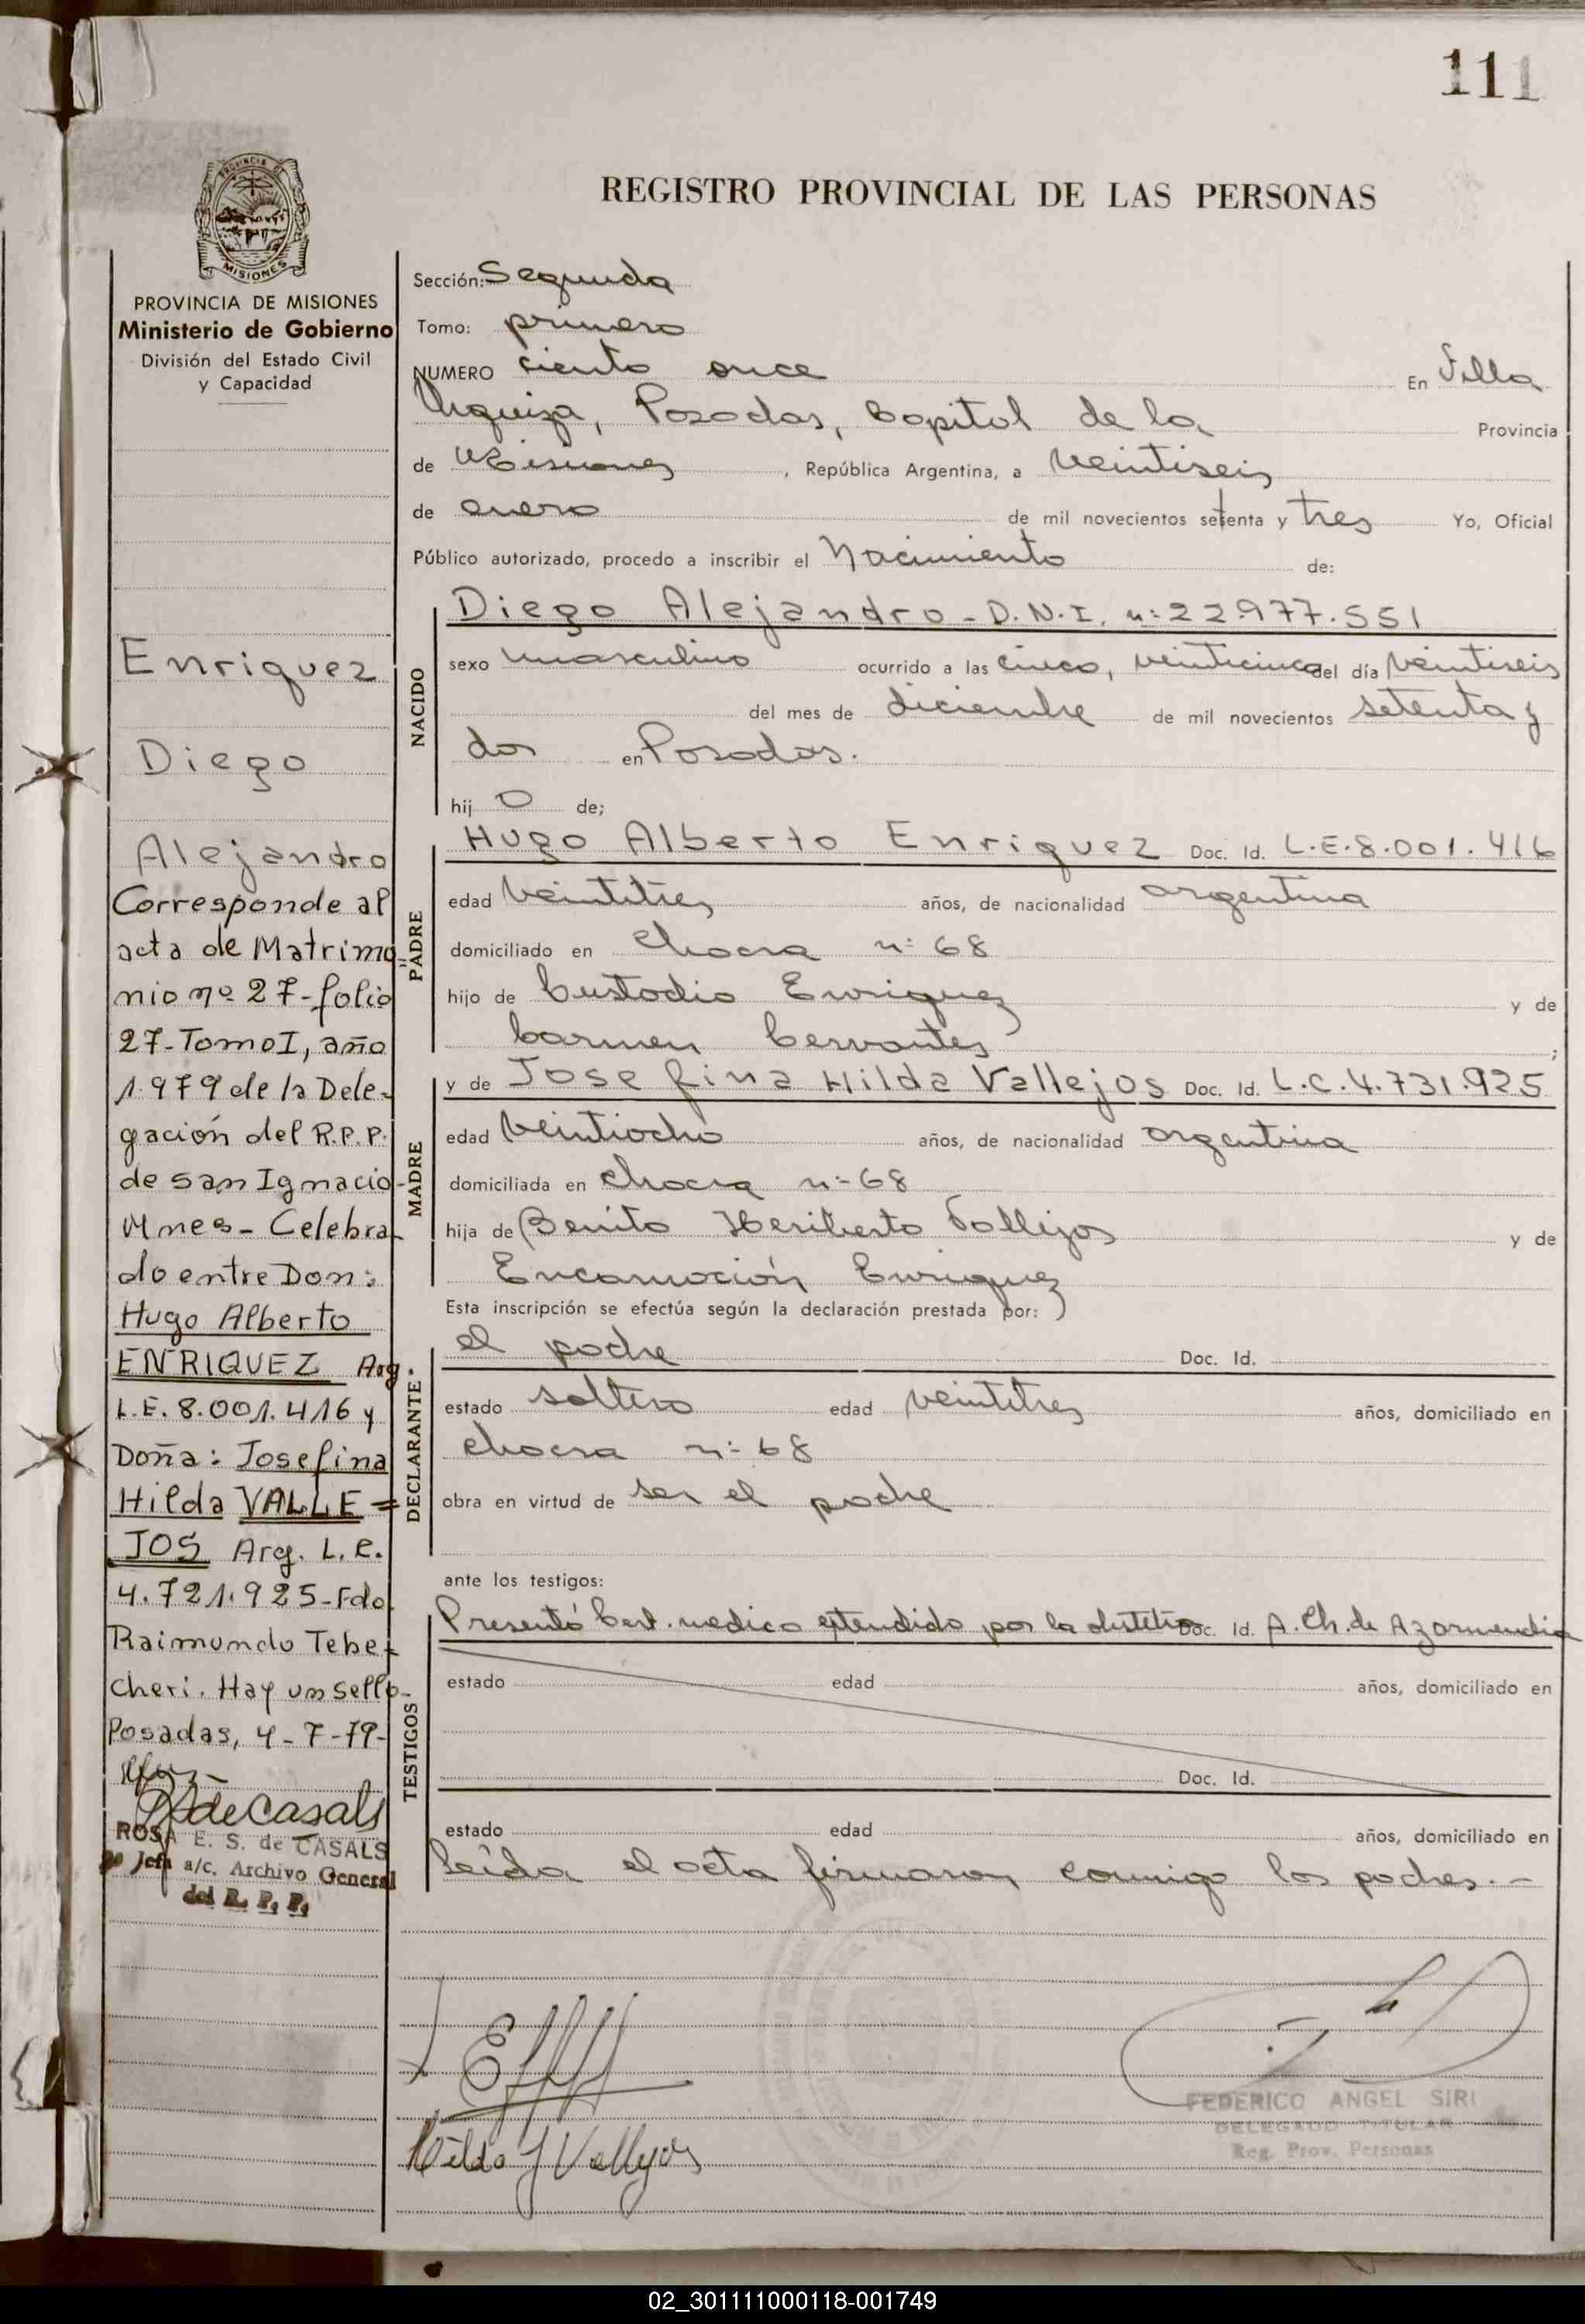 111
REGISTRO PROVINCIAL DE LAS PERSONAS
PROVINCIA DE MISIONES
Ministerio de Gobierno
División del Estado Civil
y Capacidad
Enriquez
Diego
Alejandro
Corresponde al
acta de Matrimo
nio nº 27-folio
27-Tomo I, año
1.979 de la Dele-
gación del R.P.P.
de San Ignacio-
Mnes- Celebra
do entre Don:
Hugo Alberto
ENRIQUEZ Arg.
L.E. 8.001.416 y
Doña: Josefina
Hilda VALLE=
JOS Arg. L.C.
4.721.925-Fdo.
Raimundo Tebe-
cheri. Hay un sello-
Posadas, 4-7-79-
deCasals
ROSA E. S. de CASALS
Jefa a/c. Archivo General
del R. P. P.
Sección: Segunda
Tomo: primero
NUMERO ciento once En Villa
Urquiza, Posadas, Capital de la Provincia
de Misiones, República Argentina, a veintiseis
de enero de mil novecientos setenta y tres Yo, Oficial
Público autorizado, procedo a inscribir el Nacimiento de:
NACIDO
Diego Alejandro - D.N.I. n: 22.977.551
sexo masculino ocurrido a las cinco, veinticinco del día veintiseis
del mes de diciembre de mil novecientos setenta y
dos en Posadas.
hij o de;
PADRE
Hugo Alberto Enriquez Doc. Id. L.E. 8.001.416
edad veintitres años, de nacionalidad argentina
domiciliado en chacra n: 68
hijo de Custodio Enriquez y de
Carmen Cervantes;
MADRE
y de Josefina Hilda Vallejos Doc. Id. L.C. 4.731.925
edad veintiocho años, de nacionalidad argentina
domiciliada en chacra n: 68
hija de Benito Heriberto Vallejos y de
Encarnación Enriquez
Esta inscripción se efectúa según la declaración prestada por:
DECLARANTE
el padre Doc. Id.
estado soltero edad veintitres años, domiciliado en
chacra n: 68
obra en virtud de ser el padre
ante los testigos:
TESTIGOS
Presentó Cert. medico extendido por la obstetra Doc. Id. A. Ch. de Azarmendia
estado edad años, domiciliado en
Doc. Id.
estado edad años, domiciliado en
Leída el acta firmaron conmigo los padres.-
Hilda J Vallejos
FEDERICO ANGEL SIRI
DELEGADO TITULAR
Reg. Prov. Personas
02_301111000118-001749